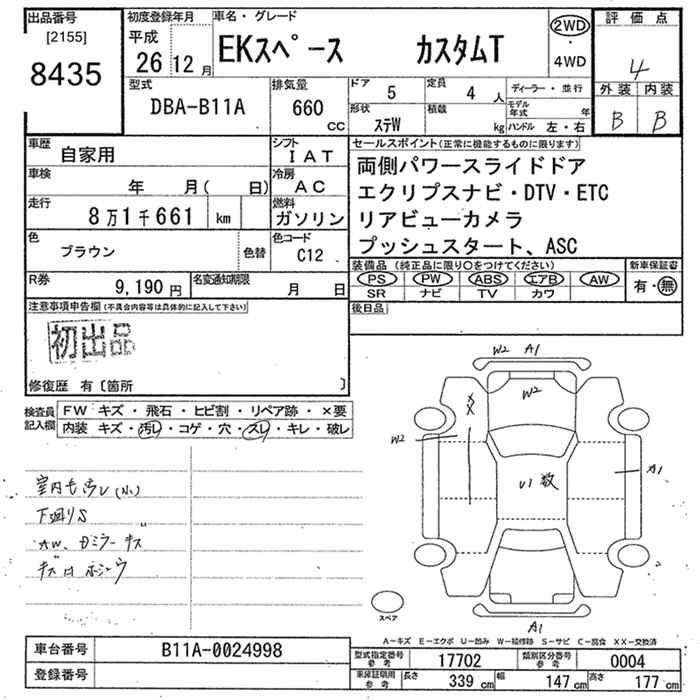 出品番号
[2155]
8435
初度登録年月
平成
26 12 月
車名・グレード
EKスペース カスタムT
2WD
・
4WD
評価点
4
外装 内装
B B
型式
DBA-B11A
排気量
660
CC
ドア
5
定員
4 人
ディーラー・並行
モデル年式 年
形状
ステW
積載
kg
ハンドル 左・右
車歴
自家用
シフト
IAT
車検
年 月( 日)
冷房
AC
走行
8万1千661 km
燃料
ガソリン
色
ブラウン
色替
色コード
C12
R券
9,190 円
名変通知期限
月 日
セールスポイント(正常に機能するものに限ります)
両側パワースライドドア
エクリプスナビ・DTV・ETC
リアビューカメラ
プッシュスタート、ASC
装備品 (純正品に限り○をつけてください)
PS PW ABS エアB AW
SR ナビ TV カワ
新車保証書
有・無
後日品
注意事項申告欄 (不具合内容等は具体的に記入して下さい)
初出品
修復歴 有〔箇所 〕
検査員記入欄
FW キズ・飛石・ヒビ割・リペア跡・×要
内装 キズ・汚レ・コゲ・穴・スレ・キレ・破レ
下廻りS
AW、
W2 A1
W2
W2
U1 数
A1
A1
スペア
A-キズ E-エクボ U-凹み W-補修跡 S-サビ C-腐食 XX-交換済
車台番号
B11A-0024998
登録番号
型式指定番号 参考
17702
類別区分番号 参考
0004
車庫証明用 参考
長さ 339 cm 幅 147 cm 高さ 177 cm